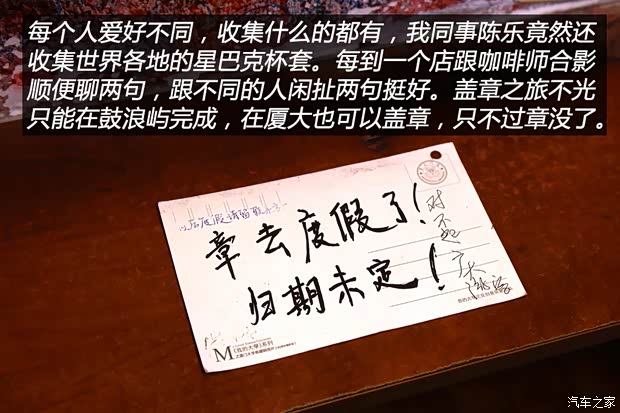 每个人爱好不同，收集什么的都有，我同事陈乐竟然还
收集世界各地的星巴克杯套。每到一个店跟咖啡师合影
顺便聊两句，跟不同的人闲扯两句挺好。盖章之旅不光
只能在鼓浪屿完成，在厦大也可以盖章，只不过章没了。
以后度假请留联系方
章去度假了！
归期未定！
对不起广大
M 【我的大學】系列
汽车之家